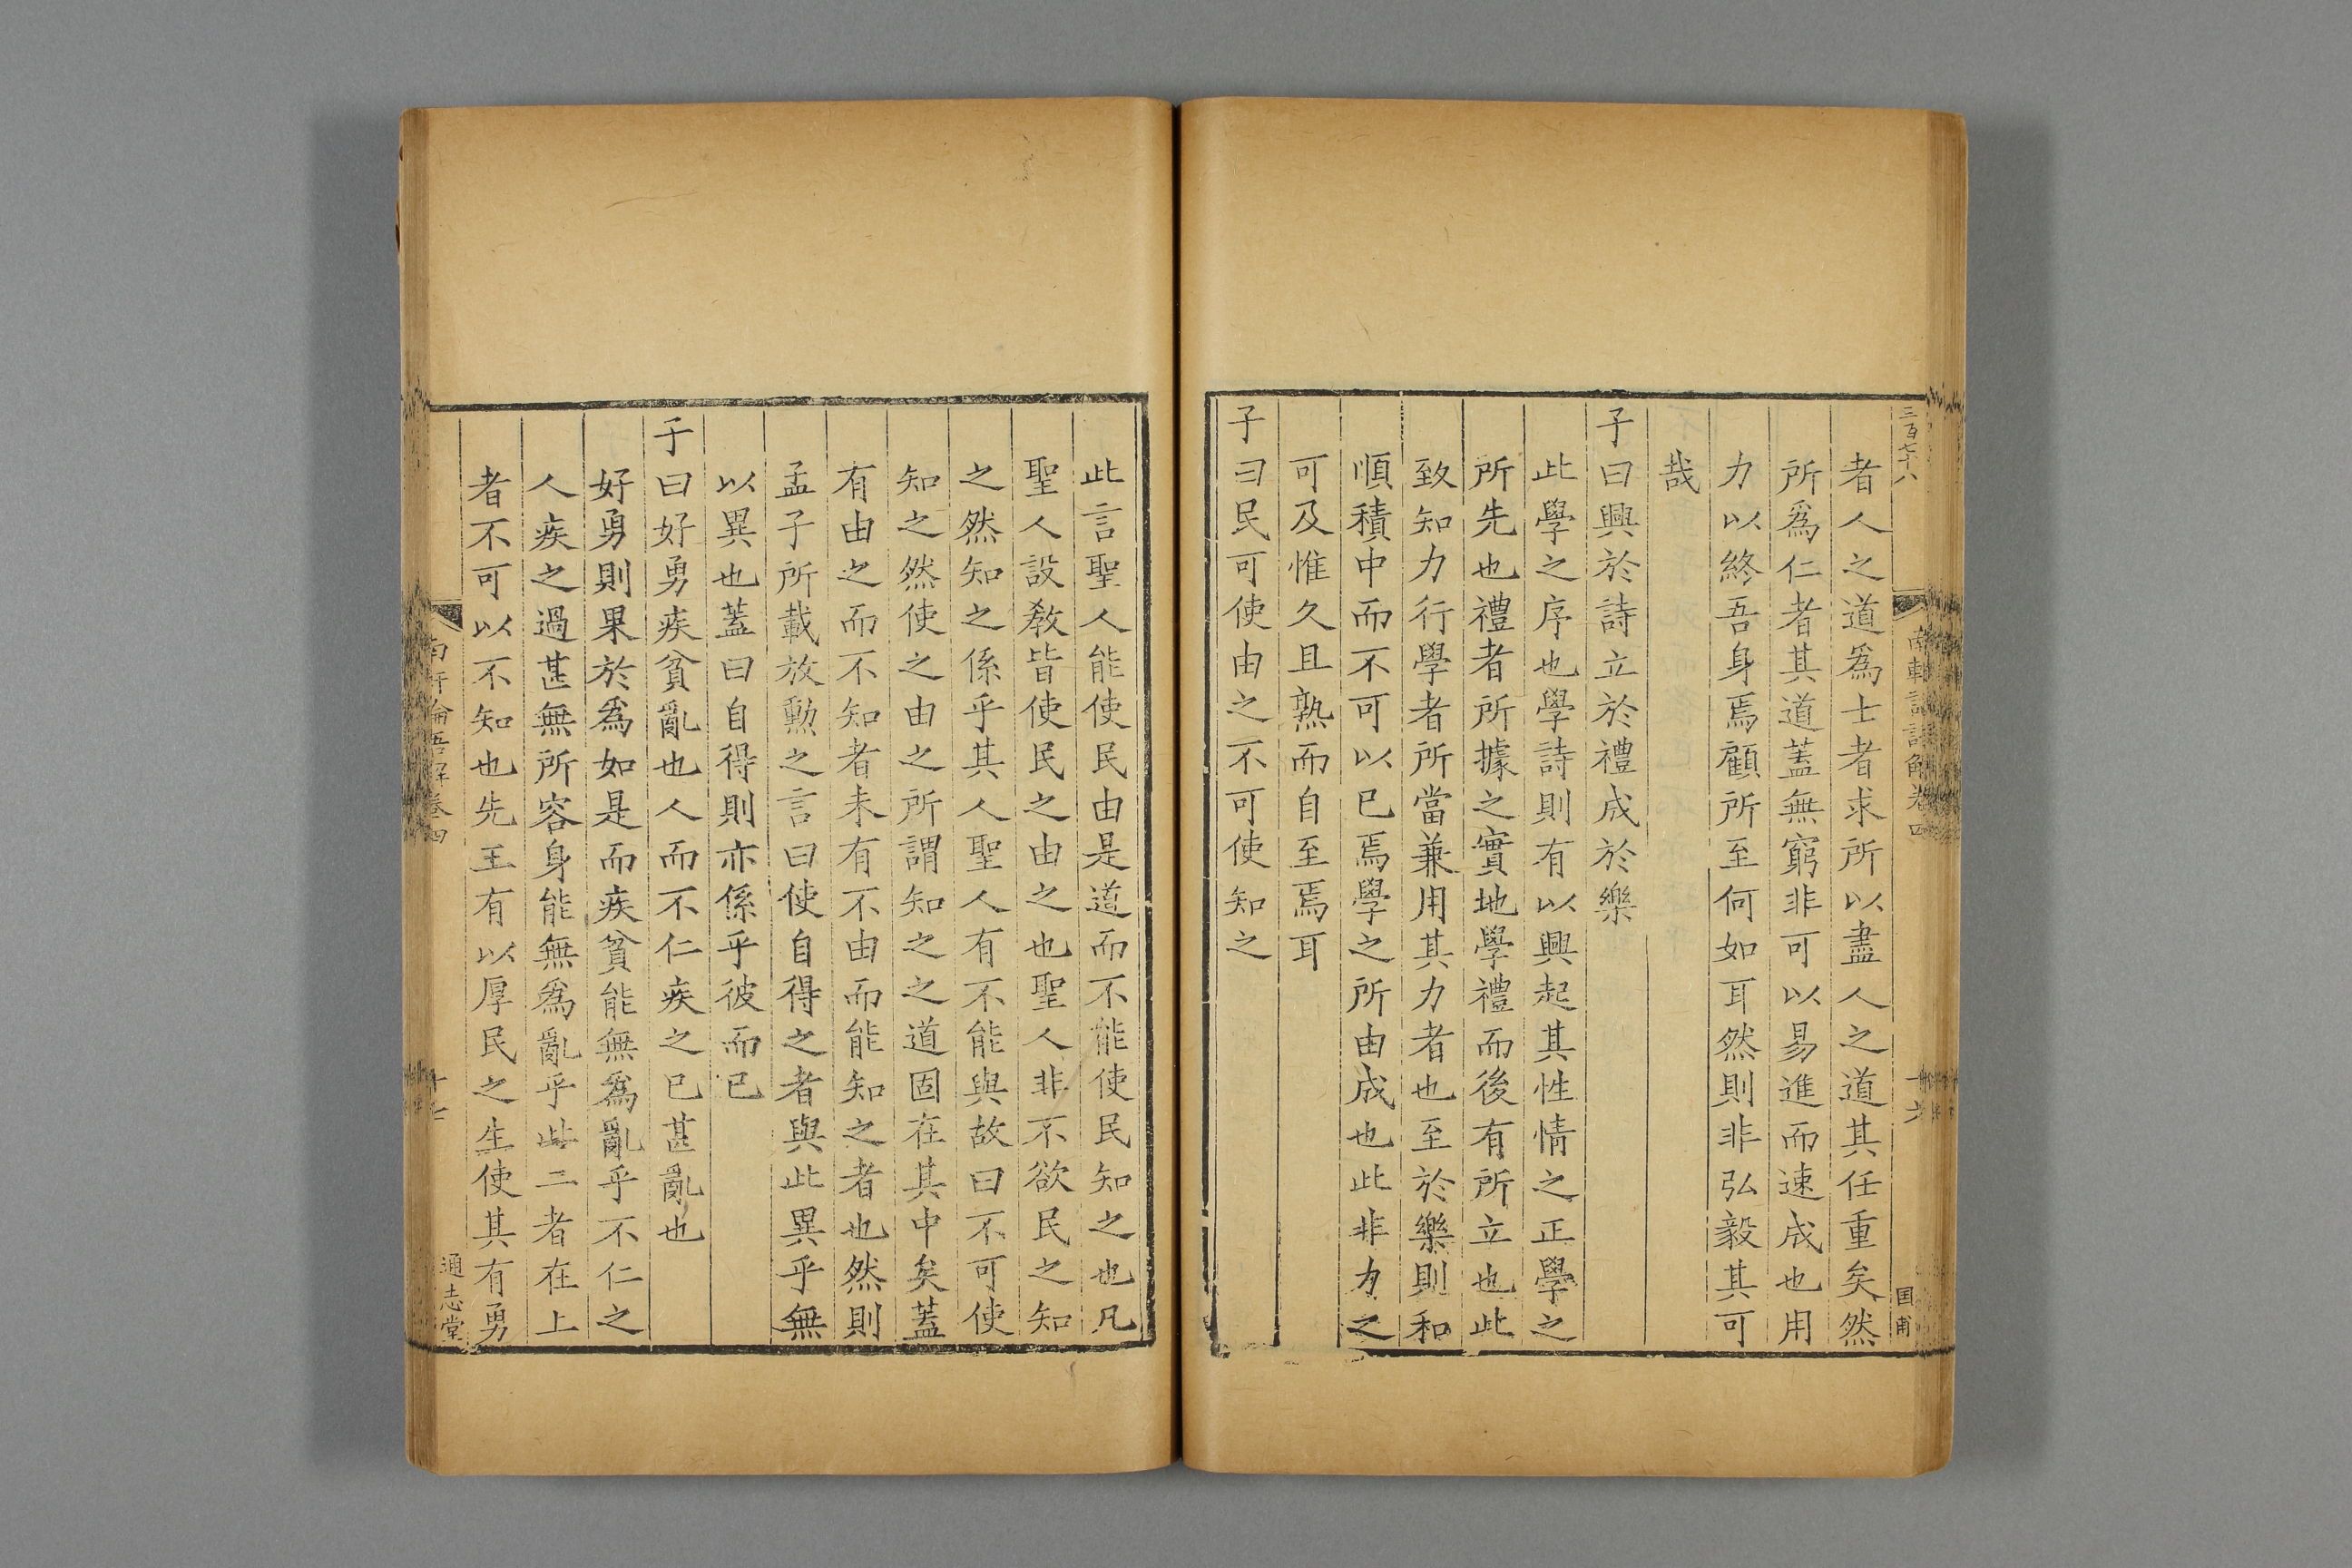 三百七十八
南軒論語解卷四
十六
国甫
者人之道爲士者求所以盡人之道其任重矣然
所爲仁者其道蓋無窮非可以易進而速成也用
力以終吾身焉顧所至何如耳然則非弘毅其可
哉
子曰興於詩立於禮成於樂
此學之序也學詩則有以興起其性情之正學之
所先也禮者所據之實地學禮而後有所立也此
致知力行學者所當兼用其力者也至於樂則和
順積中而不可以已焉學之所由成也此非力之
可及惟久且熟而自至焉耳
子曰民可使由之不可使知之
此言聖人能使民由是道而不能使民知之也凡
聖人設敎皆使民之由之也聖人非不欲民之知
之然知之係乎其人聖人有不能與故曰不可使
知之然使之由之所謂知之之道固在其中矣蓋
有由之而不知者未有不由而能知之者也然則
孟子所載放勳之言曰使自得之者與此異乎無
以異也蓋曰自得則亦係乎彼而已
子曰好勇疾貧亂也人而不仁疾之已甚亂也
好勇則果於爲如是而疾貧能無爲亂乎不仁之
人疾之過甚無所容身能無爲亂乎此二者在上
者不可以不知也先王有以厚民之生使其有勇
南軒論語解卷四
十七
通志堂